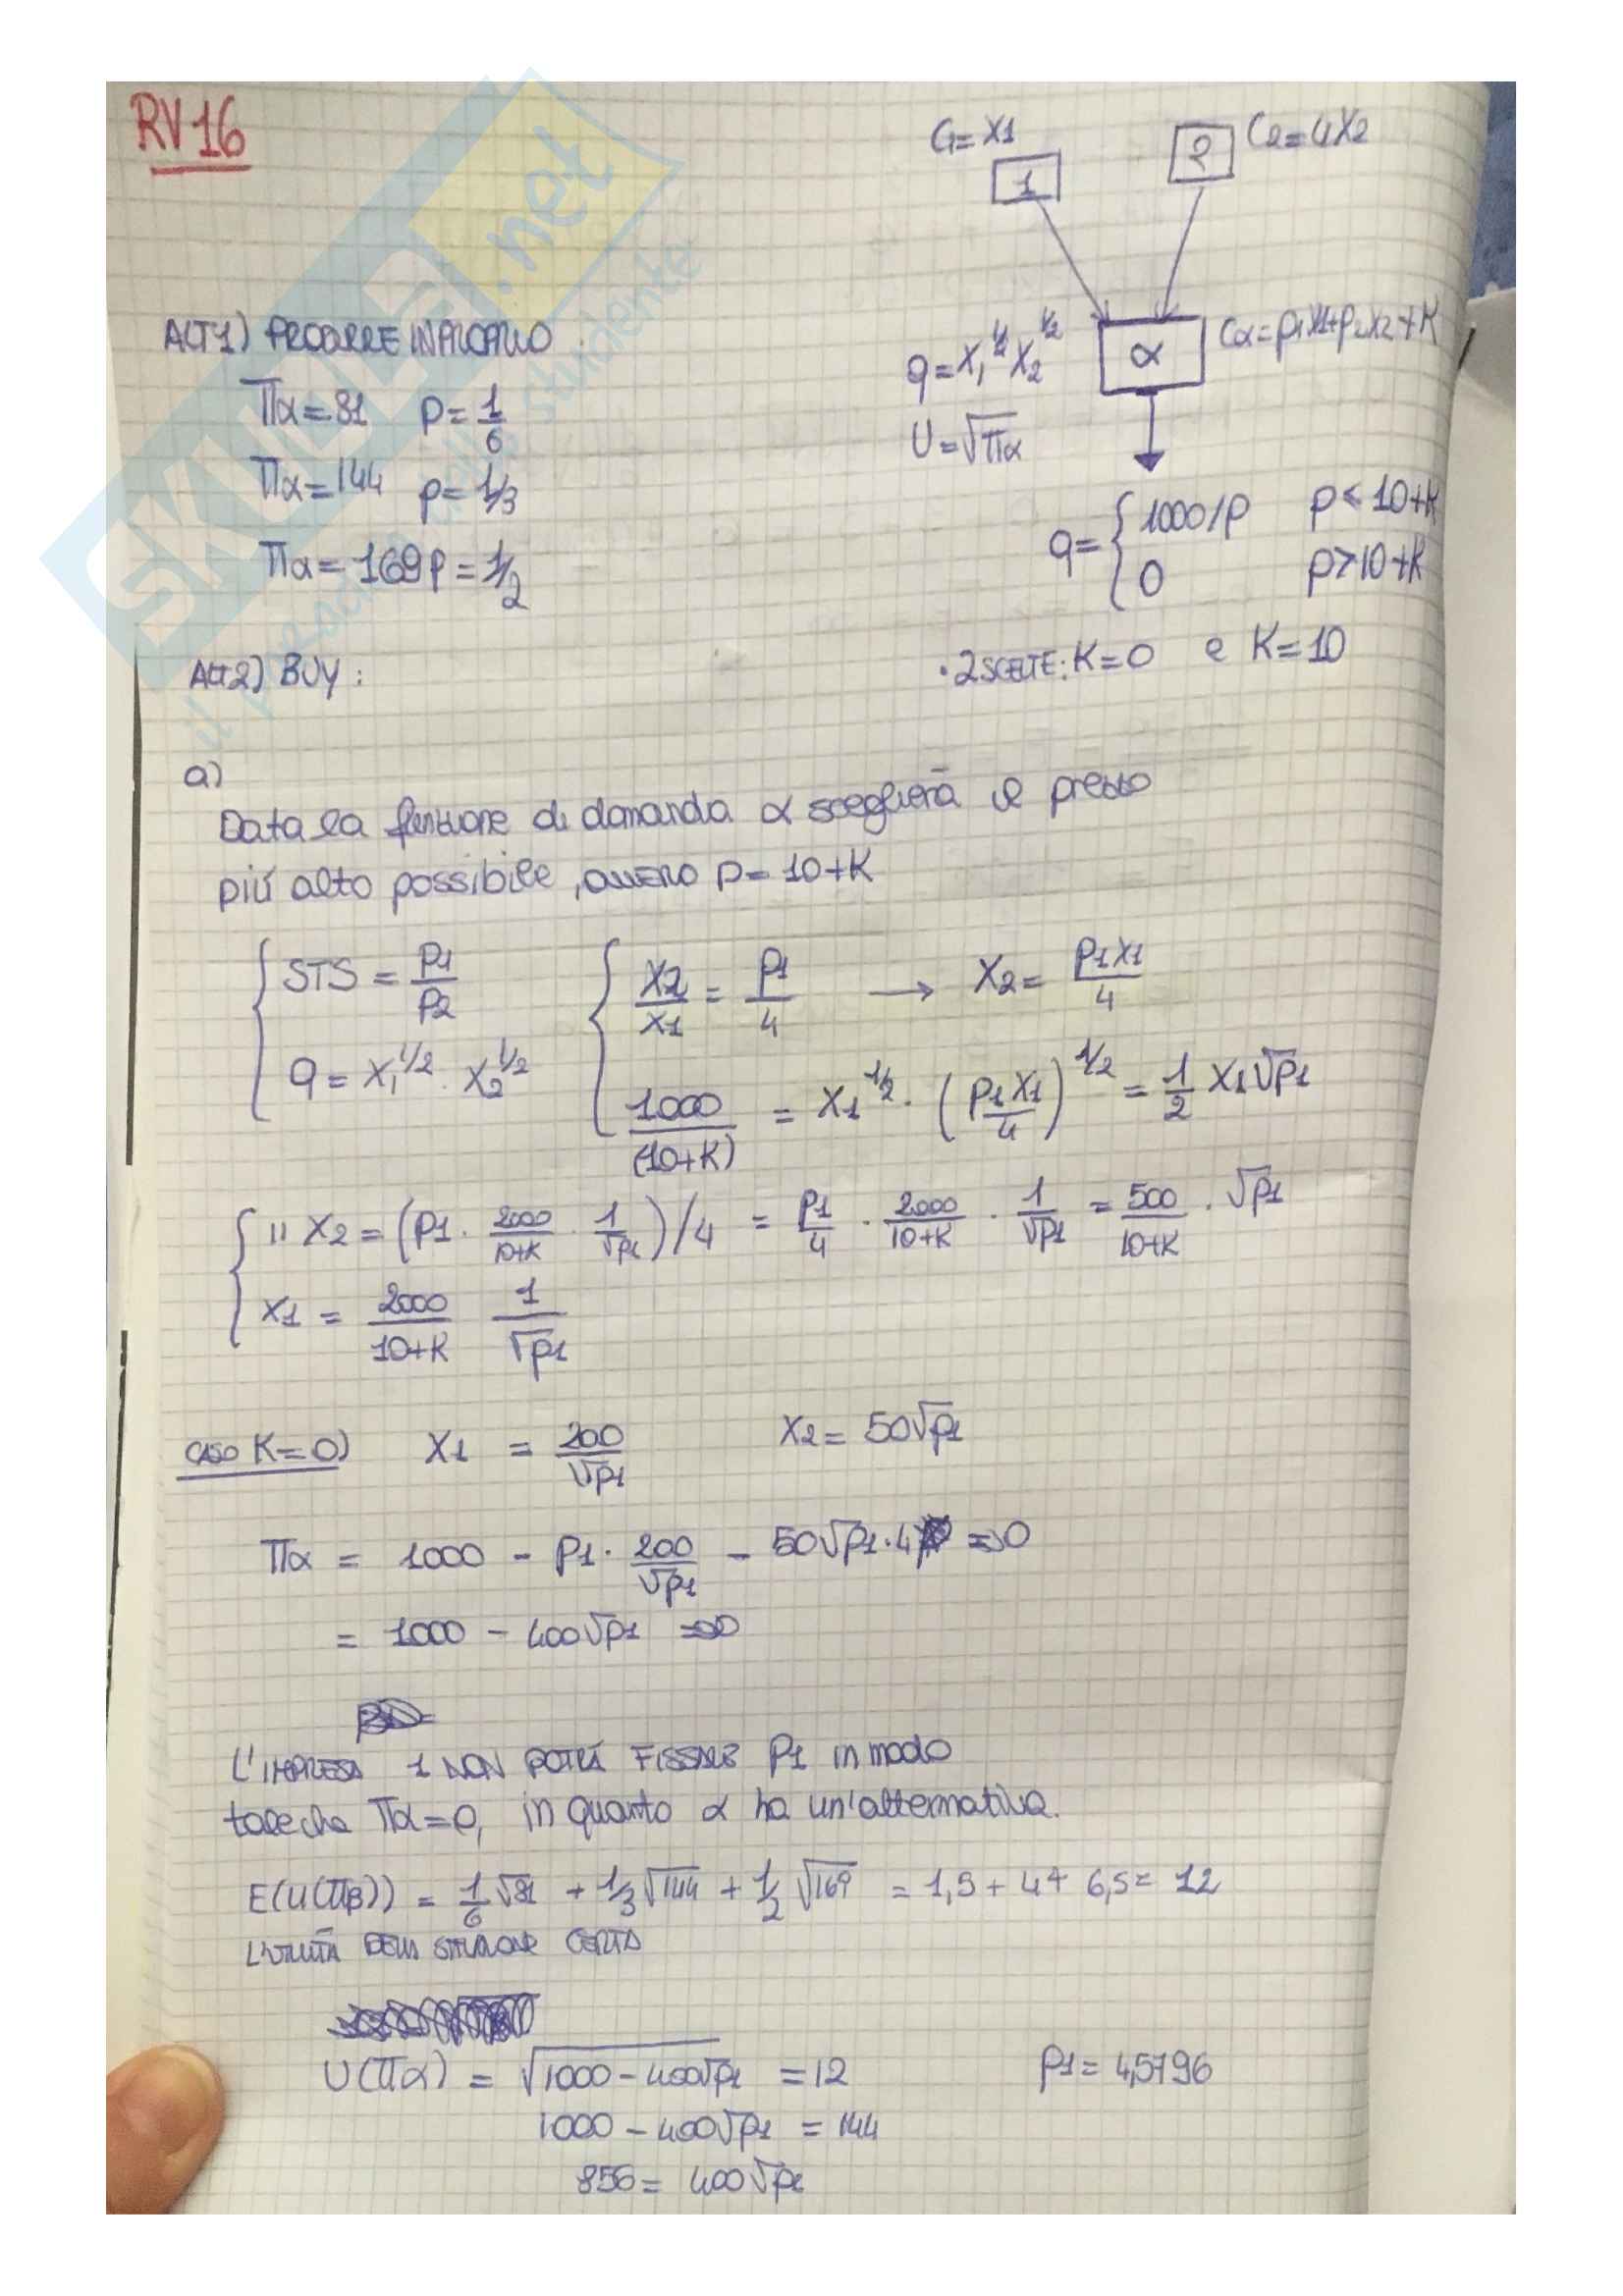 RV16
C1= X1
C2= 4X2
1
2
ALT1) PRODURRE IN PROPRIO
q = X1^1/2 X2^1/2
α
Cα = p1X1+p2X2+K
Πα = 81 p = 1/6
U = √Πα
Πα = 144 p = 1/3
q = { 1000/p p ≤ 10+K
0 p > 10+K
Πα = 169 p = 1/2
ALT2) BUY :
• 2 SCELTE: K=0 e K=10
a)
Data la funzione di domanda α sceglierà il prezzo
più alto possibile, ovvero p = 10+K
{ STS = p1/p2 { X2/X1 = p1/4 → X2 = p1X1/4
q = X1^1/2 · X2^1/2 1000/(10+K) = X1^1/2 · (p1X1/4)^1/2 = 1/2 X1√p1
{ " X2 = (p1 · 2000/10+K · 1/√p1)/4 = p1/4 · 2000/10+K · 1/√p1 = 500/10+K · √p1
X1 = 2000/10+K 1/√p1
CASO K=0) X1 = 200/√p1 X2 = 50√p1
Πα = 1000 - p1 · 200/√p1 - 50√p1·4 = 0
= 1000 - 400√p1 = 0
L'IMPRESA 1 NON POTRÀ FISSARE P1 in modo
tale che Πα=0, in quanto α ha un'alternativa.
E(U(Πβ)) = 1/6 √81 + 1/3 √144 + 1/2 √169 = 1,5 + 4 + 6,5 = 12
L'UTILITÀ DELLA SITUAZIONE CERTA
U(Πα) = √1000-400√p1 = 12 p1 = 4,5796
1000 - 400√p1 = 144
856 = 400√p1
SKUOLA.net
il paradiso dello studente